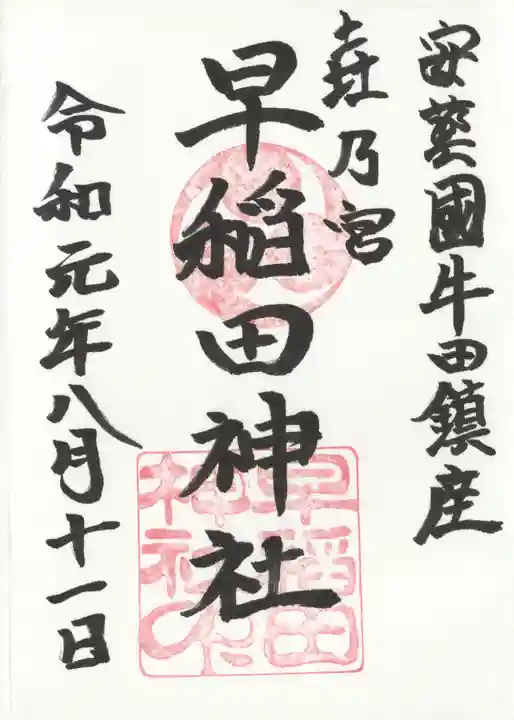 安藝國牛田鎮座
㐂乃宮
早稲田神社
令和元年八月十一日
早稲田
神社